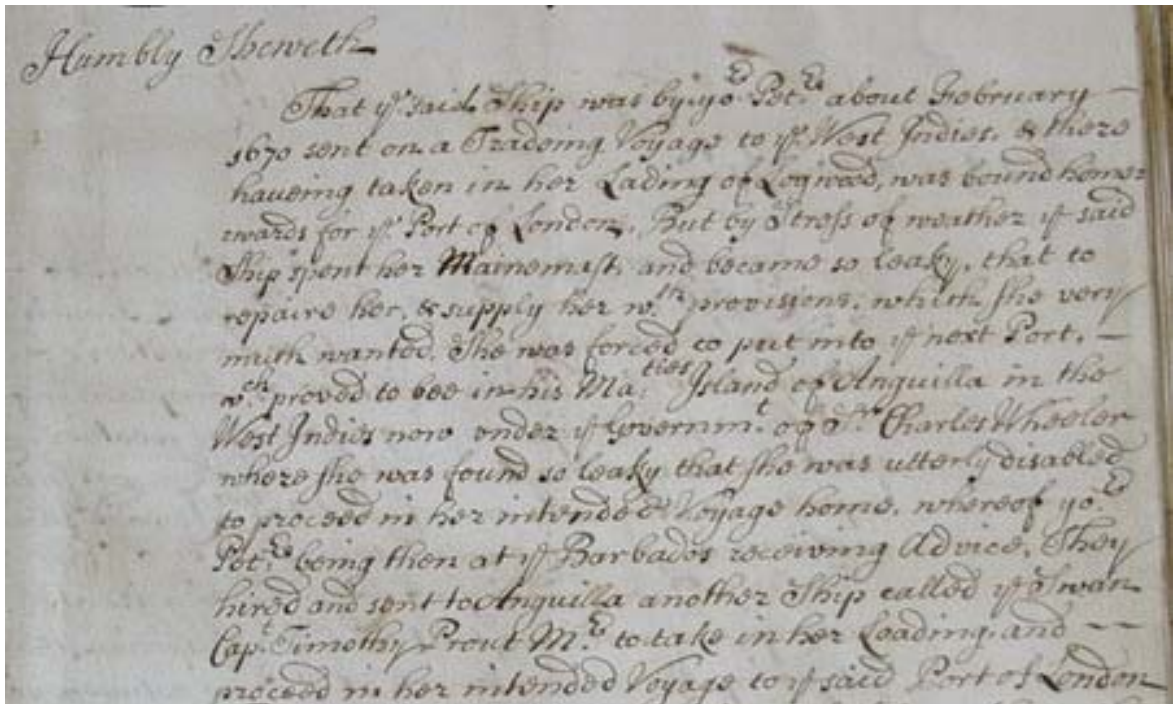 Humbly Sheweth
That ye said Ship was by yor Petrs about February
1670 sent on a Tradeing Voyage to ye West Indies, & there
haveing taken in her Lading of Logwood, was bound home=
wards for ye Port of London, But by Stress of weather ye said
Ship spent her Mainemast, and became so leaky, that to
repaire her, & supply her wth provisions, which she very
much wanted, She was forced to put into ye next Port, —
wch proved to bee in his Maties Island of Anguilla in the
West Indies now under ye Governmt of Sr Charles Wheeler
where she was found so leaky that she was utterly disabled
to proceed in her intended Voyage home, whereof yor
Petrs being then at ye Barbados receiving Advice, They
hired and sent to Anguilla another Ship called ye Swan
Capt Timothy Prout Mr to take in her Loading, and — —
proceed in her intended Voyage to ye said Port of London